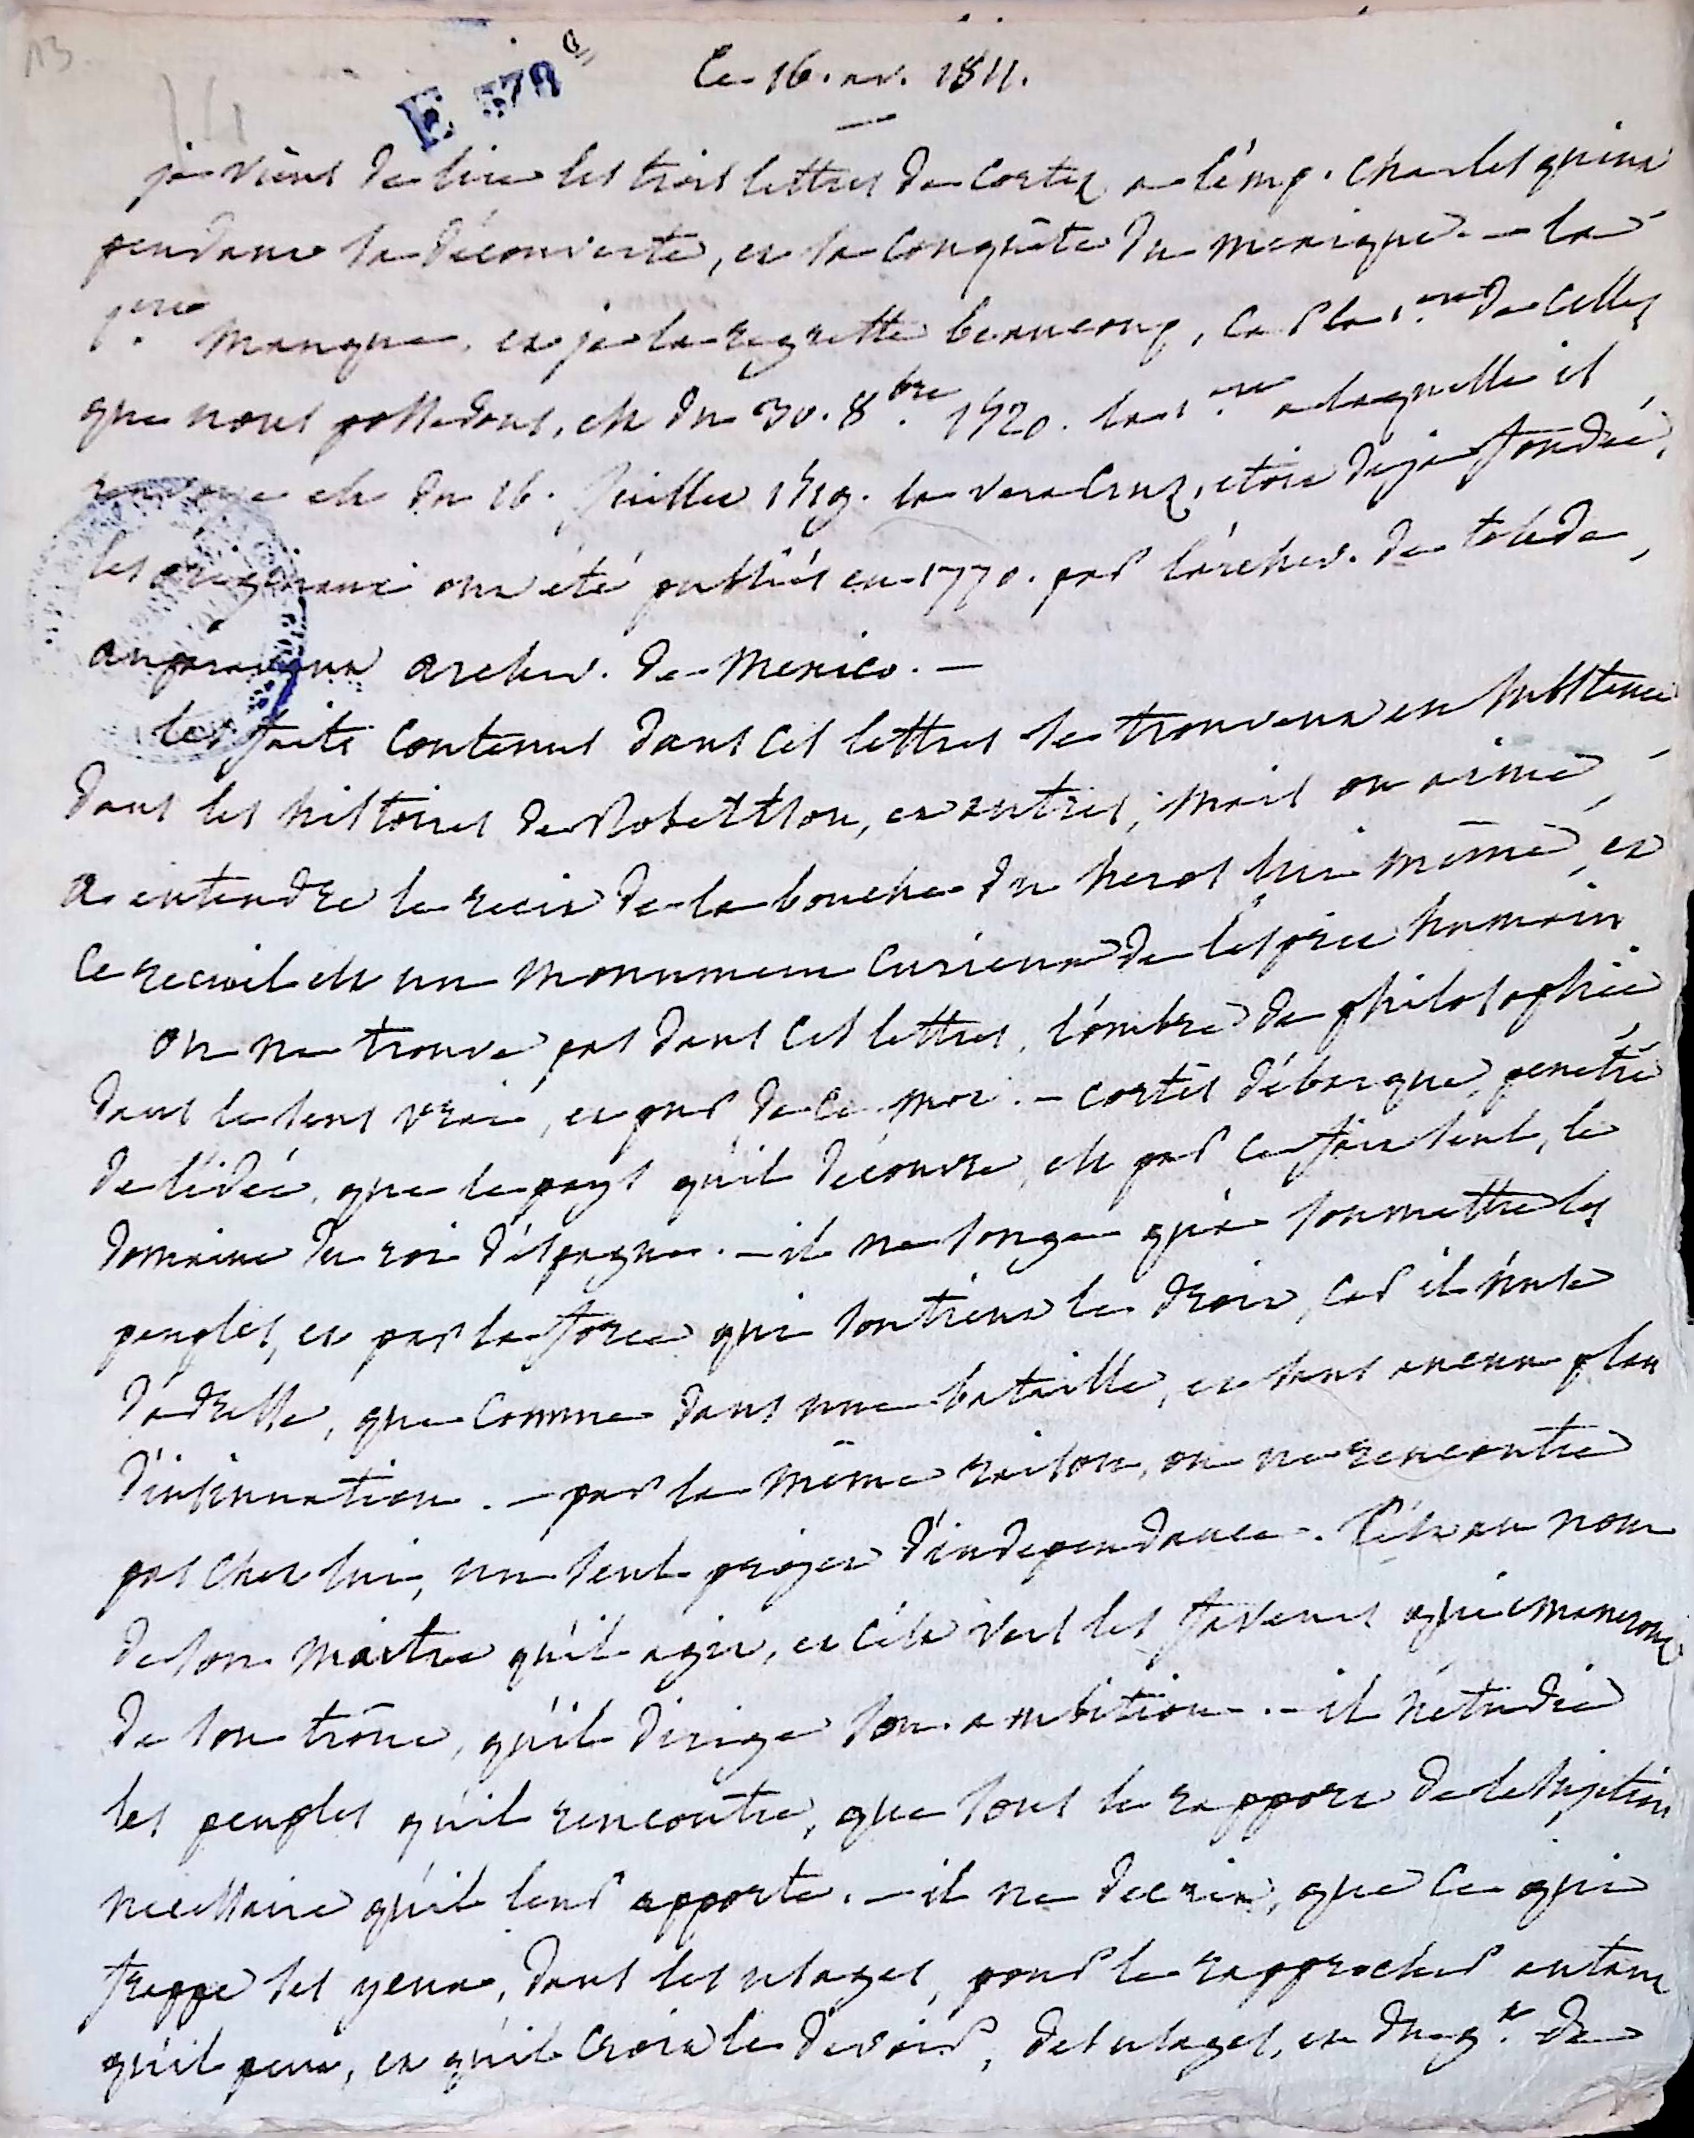 13
E 378
Ce 16. av. 1811.
je viens de lire les trois lettres de Cortez a l'emp. Charles quint
pendant la découverte, et la conquête du mexique. — la
1.ere manque, et je la regrette beaucoup, car la 1.ere de celles
que nous possedons, est du 30. 8.bre 1520. la 1.ere a laquelle il
renvoie est du 16. juillet 1519. la vera Cruz, etoit deja fondée,
les originaux ont été publiés en 1770. par l'archev. de tolede,
auparavant archev. de Mexico. —
les faits contenus dans ces lettres se trouvent en substance
dans les histoires de Robertson, et autres, mais on aime
a entendre le recit de la bouche du heros lui même, et
ce recueil est un monument curieux de l'esprit humain
on ne trouve pas dans ces lettres, l'ombre de philosophie
dans le sens vrai, et pur de ce mot. — Cortès débarque, penetré
de l'idée, que le pays qu'il découvre, est par ce fait seul, le
domaine du roi d'espagne. — il ne songe qu'à soumettre les
peuples, et par la force qui soutient le droit, car il n'use
d'adresse, que comme dans une bataille, et sans aucun plan
d'insinuation. — par la même raison, on ne rencontre
pas chez lui, un seul projet d'independance. c'est au nom
de son maitre qu'il agit, et c'est vers les faveurs qui emaneront
de son trône, qu'il dirige son ambition. — il n'etudie
les peuples qu'il rencontre, que sous le rapport de la sujetion
necessaire qu'il leur apporte. — il ne decrit, que ce qui
frappe ses yeux, dans les usages, pour le rapprocher autant
qu'il peut, et qu'il croit le devoir, des usages, et du g.t de